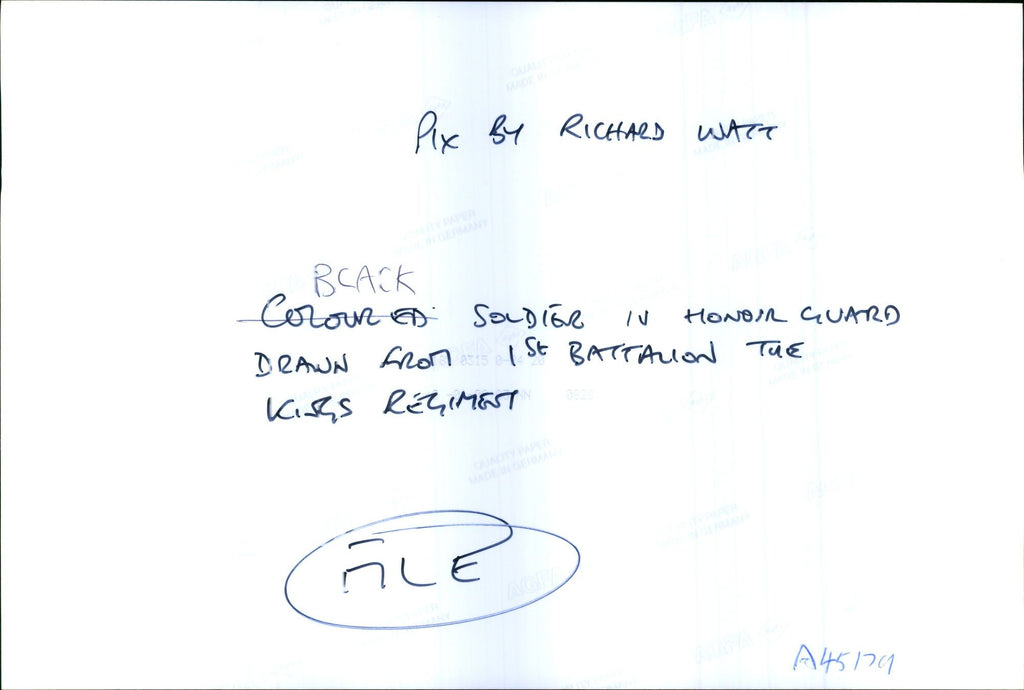 PIX BY RICHARD WATT
BLACK
COLOURED SOLDIER IN HONOUR GUARD
DRAWN FROM 1ST BATTALION THE
KINGS REGIMENT
FILE
A45179
QUALITY PAPER
MADE IN GERMANY
AGFA